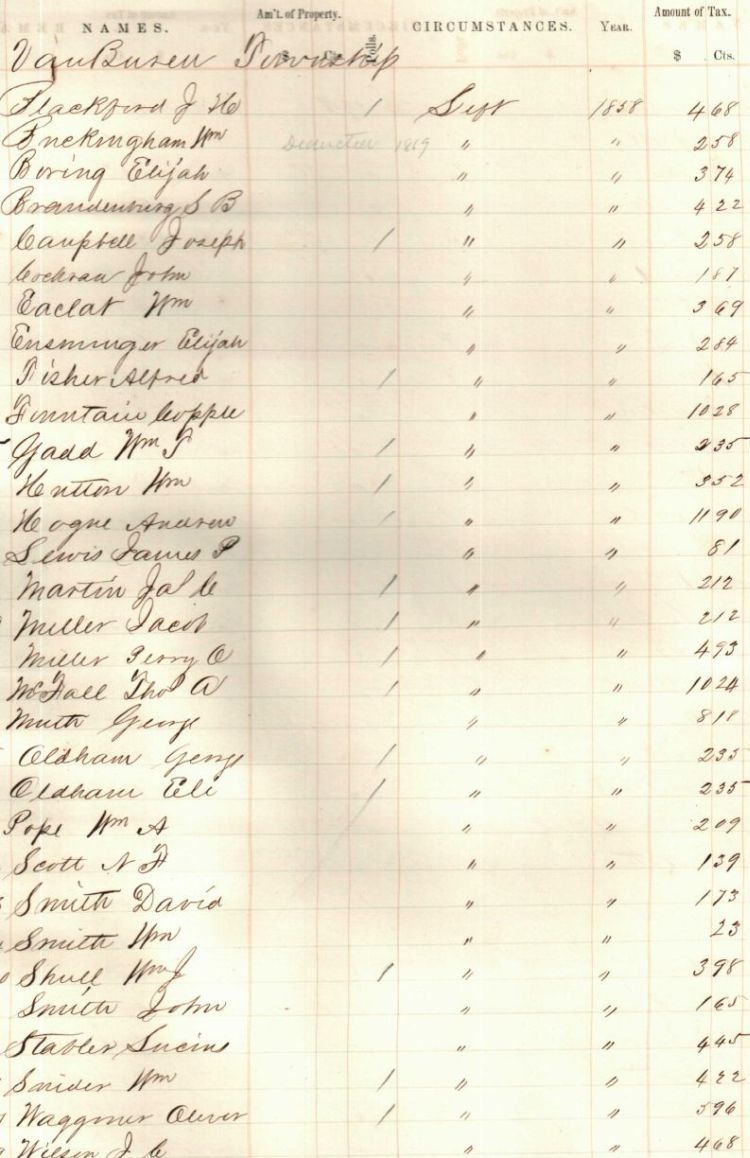 NAMES. Am't. of Property. Polls. CIRCUMSTANCES. YEAR. Amount of Tax.
$ Cts. $ Cts.
VanBuren Township
Flackford J H 1 Left 1858 468
Buckingham Wm 1869 " " 258
Boring Elijah " " 374
Brandenburg S B " " 422
Campbell Joseph 1 " " 258
Cochran John " " 187
Eaclat Wm " " 369
Ensminger Elijah " " 284
Fisher Alfred 1 " " 165
Fountain Copple " " 1028
Gadd Wm S 1 " " 235
Hutton Wm 1 " " 352
Hogue Andrew 1 " " 1190
Lewis James P " " 81
Martin Jas C 1 " " 212
Miller Jacob 1 " " 212
Miller Perry O 1 " " 493
McFall Thos A 1 " " 1024
Muth George " " 818
Oldham George 1 " " 235
Oldham Eli 1 " " 235
Pope Wm A " " 209
Scott N F " " 139
Smith David " " 173
Smith Wm " " 23
Shull Wm J 1 " " 398
Smith John " " 165
Stabler Lucius " " 445
Snider Wm 1 " " 422
Waggoner Oliver 1 " " 596
Wilson J C " " 468